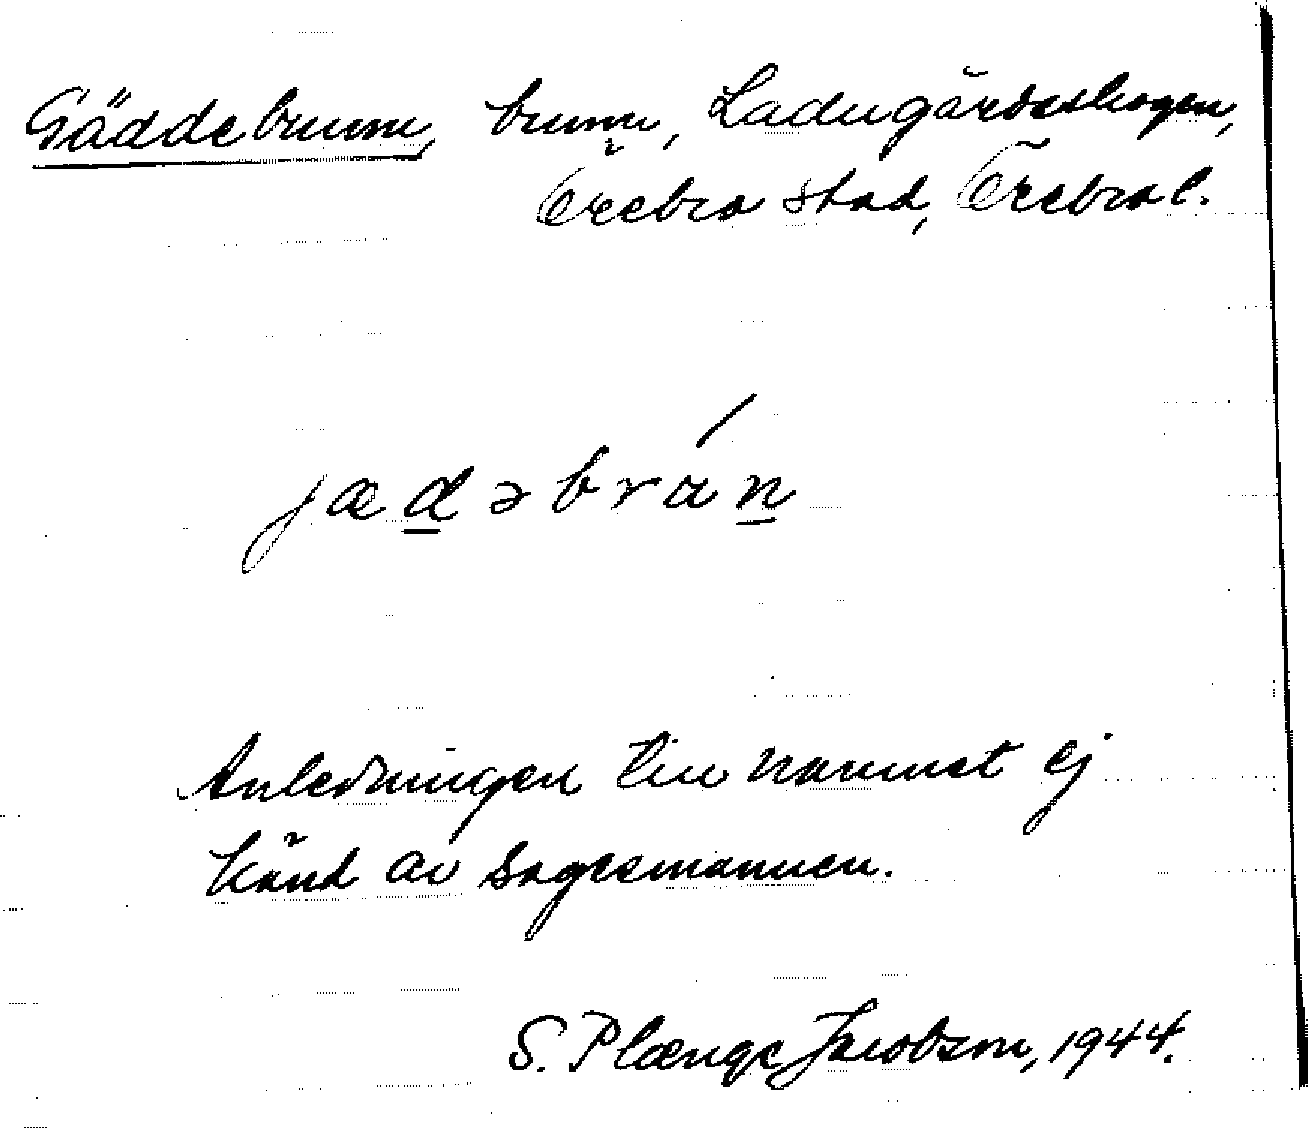 Gäddebrunn, brunn, Ladugårdsskogen,
Örebro stad, Örebro l.
jædəbrán
Anledningen till namnet ej
känd av sagesmannen.
S. Plænge Jacobson, 1944.